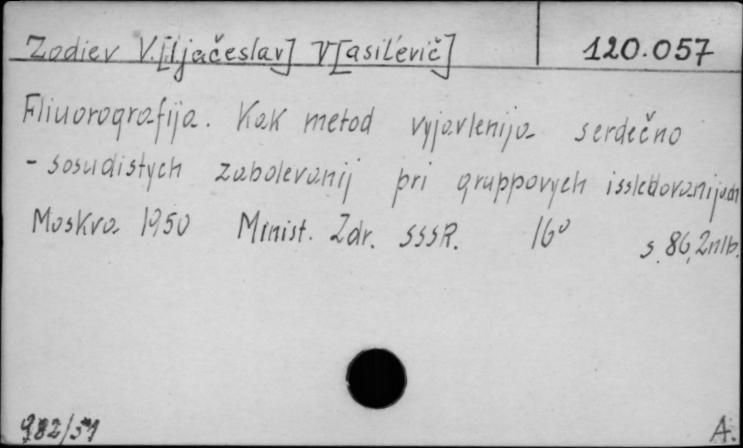 Zodiev V.[jačeslav] V[asil'evič]
120.057
Fliuorografija. Kak metod vyjavlenija serdečno
- sosudistych zabolevanij pri gruppovych issledovanijach
Moskva 1950 Minist. Zdr. SSSR. 16° s. 86, 2nlb.
982/51
A.